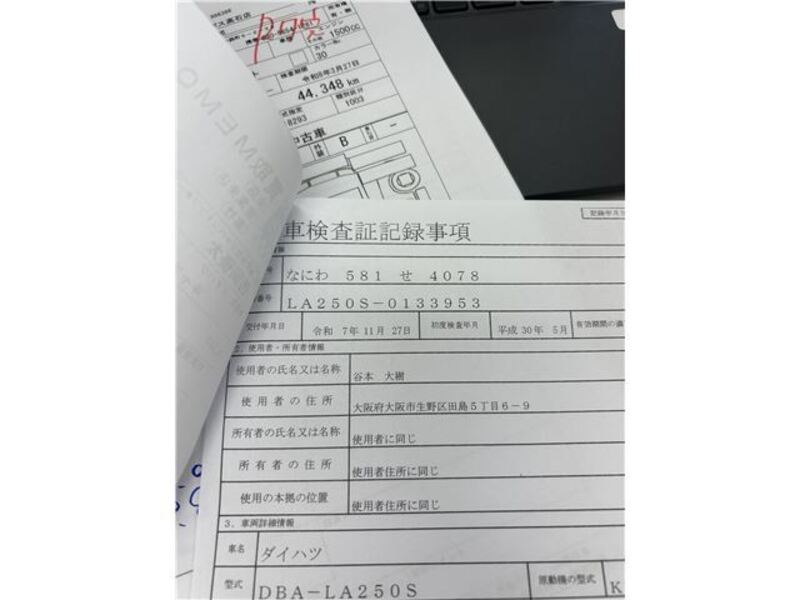 1500 CC
カラー名
30
検査期間
令和8年3月27日
44,348 km
類別区分
8293
1003
中古車
外装
B
車検査証記録事項
なにわ 581 せ 4078
番号
LA250S-0133953
交付年月日
令和 7年11月 27日
初度検査年月
平成 30年 5月
有効期間の満
使用者・所有者情報
使用者の氏名又は名称
谷本 大樹
使用者の住所
大阪府大阪市生野区田島5丁目6-9
所有者の氏名又は名称
使用者に同じ
所有者の住所
使用者住所に同じ
使用の本拠の位置
使用者住所に同じ
3. 車両詳細情報
車名
ダイハツ
型式
DBA-LA250S
原動機の型式
K